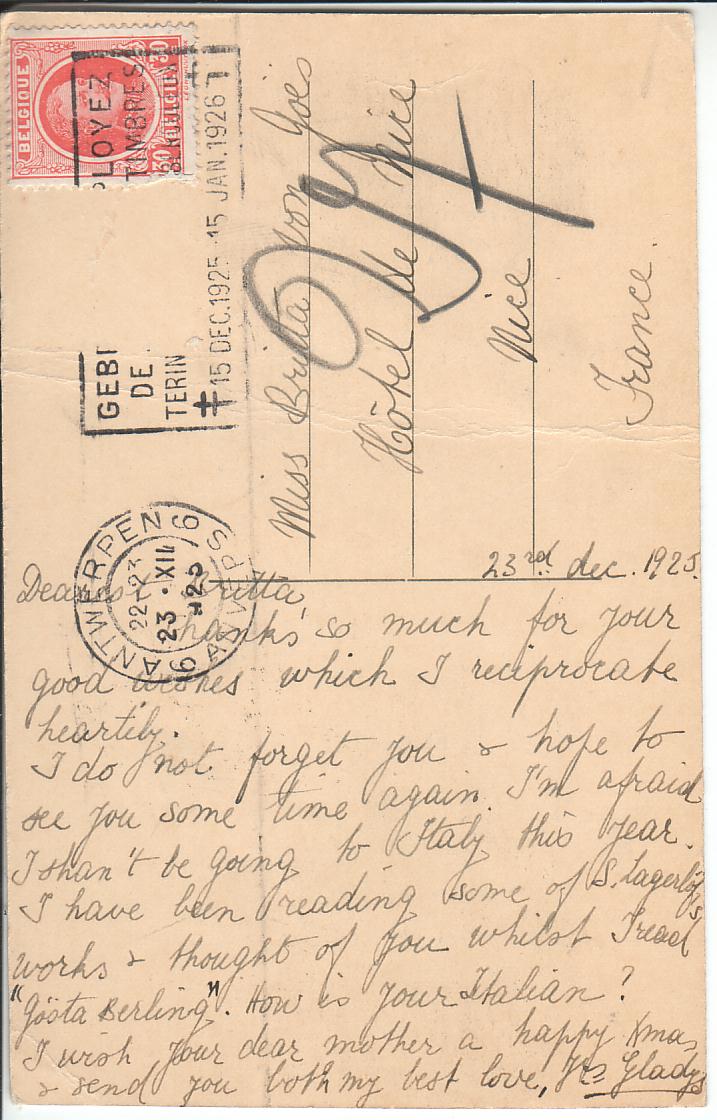 BELGIQUE
30 30
PLOYEZ
TIMBRES
GEBR
DE
TERIN
15 DEC.1925 15 JAN.1926
ANTWERPEN 6
22-23
23 · XII
1925
6 ANVERS
Miss Britta von Goës
Hôtel de Nice
Nice
France.
23rd dec. 1925.
Dearest Britta,
Thanks so much for your
good wishes which I reciprocate
heartily.
I do not forget you & hope to
see you some time again. I'm afraid
I shan't be going to Italy this year.
I have been reading some of S. Lagerlöf's
works & thought of you whilst I read
"Gösta Berling". How is your Italian?
I wish your dear mother a happy Xmas
& send you both my best love, Gladys